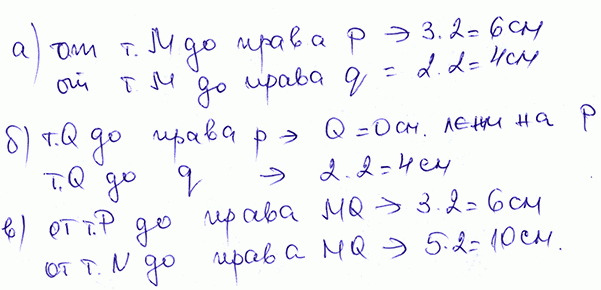 а) от т. М до права р → 3.2 = 6 см
от т. М до права q = 2.2 = 4 см
б) т. Q до права р → Q = 0 см. лежи на Р
т. Q до q → 2.2 = 4 см
в) от т. Р до права MQ → 3.2 = 6 см
от т. N до права MQ → 5.2 = 10 см.